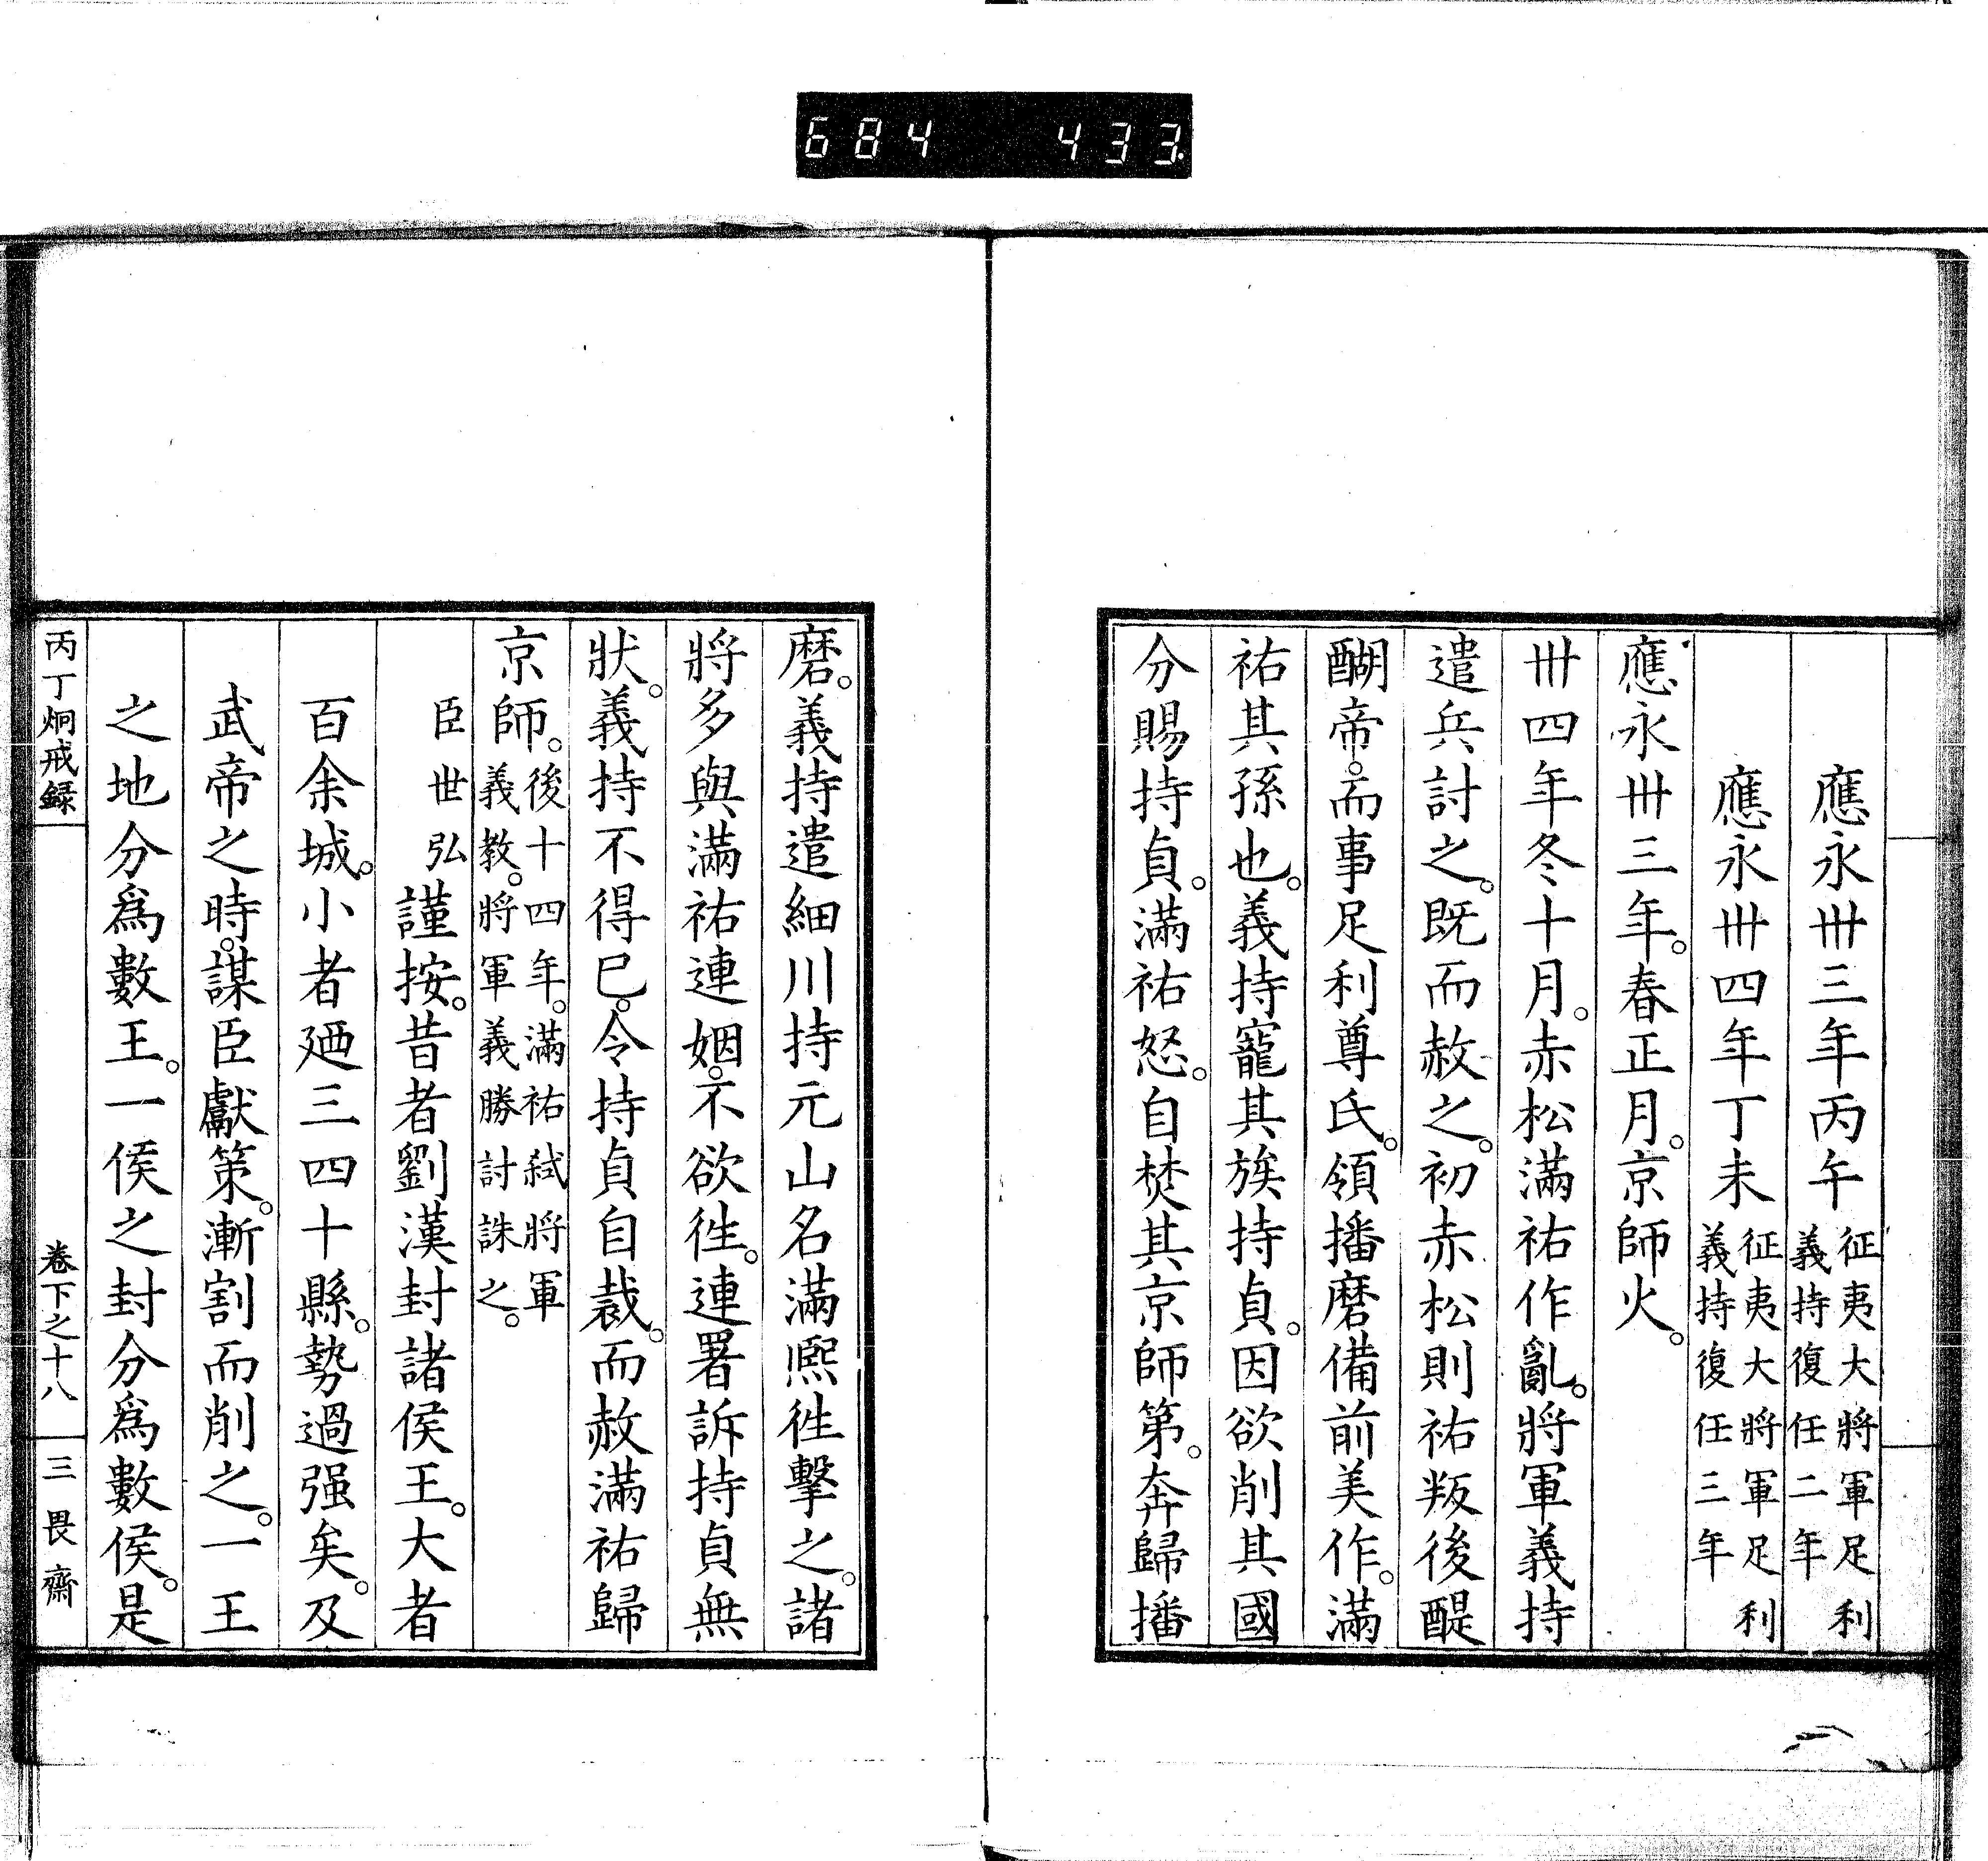 684 433
應永卅三年丙午征夷大將軍足利義持復任二年
應永卅四年丁未征夷大將軍足利義持復任三年
應永卅三年。春正月。京師火。
卅四年冬十月。赤松滿祐作亂。將軍義持
遣兵討之。既而赦之。初赤松則祐叛後醍
醐帝。而事足利尊氏。領播磨備前美作。滿
祐其孫也。義持寵其族持貞。因欲削其國
分賜持貞。滿祐怒。自焚其京師第。奔歸播
磨。義持遣細川持元山名滿熙徃擊之。諸
將多與滿祐連姻。不欲徃。連署訴持貞無
狀。義持不得已。令持貞自裁。而赦滿祐歸
京師。後十四年。滿祐弒將軍義教。將軍義勝討誅之。
臣世弘謹按。昔者劉漢封諸侯王。大者
百余城。小者廼三四十縣。勢過强矣。及
武帝之時。謀臣獻策。漸割而削之。一王
之地分爲數王。一侯之封分爲數侯。是
丙丁炯戒録 卷下之十八 三畏齋